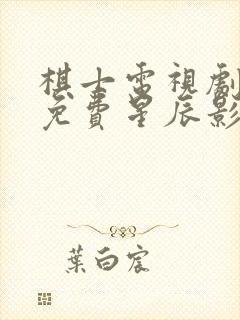 棋士電視劇
免費星辰影
葉白宸